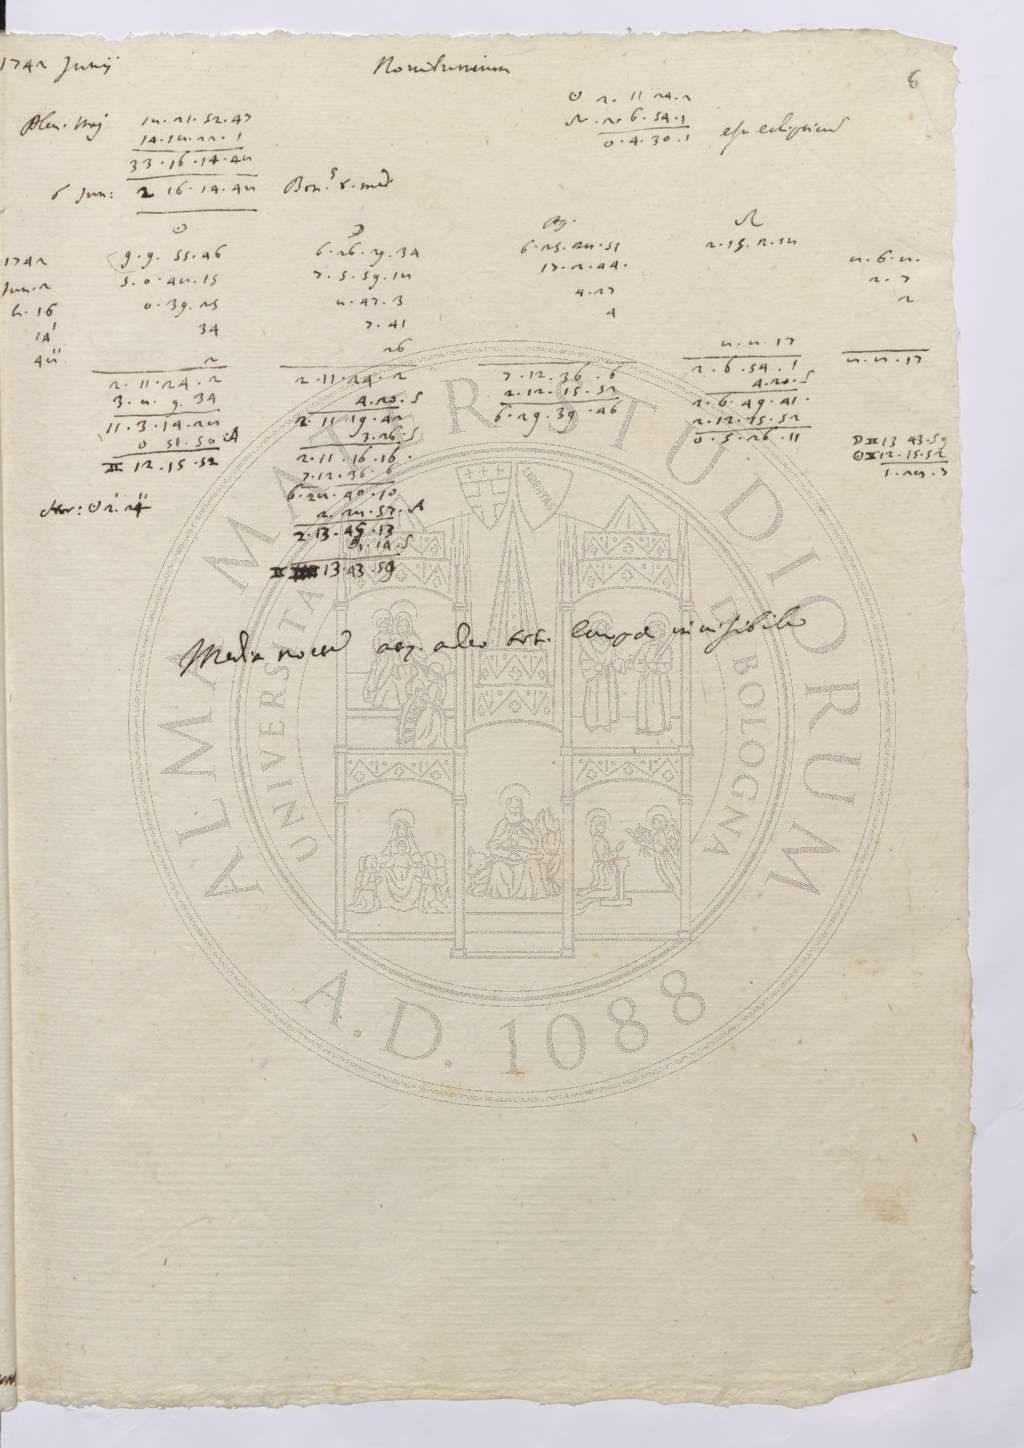 1742 Junij Novilunium 6
☉ 2. 11 24. 2
☊. 2. 6. 54. 1
0. 4. 30. 1 est eclipticum
Plen. Maj 18. 21. 52. 47
14. 18. 22. 1
33. 16. 14. 48
6 Jun: 2 16. 14. 48 Bon.
☉ ☽ Ap. ☊
1742 9. 9. 55. 46 6. 26. 29. 34 6. 25. 28. 51 2. 15. 2. 18 8. 6. 8.
Jun. 2 5. 0. 48. 15 7. 5. 59. 18 17. 2. 44. 2. 7
h. 16 0. 39. 25 8. 47. 3 4. 27 2
14' 34 7. 41 4
48'' 2 26 8. 8. 17 8. 8. 17
2. 11. 24. 2 2. 11. 24. 2 7. 12. 36. 6 2. 6. 54. 1
3. 8. 9. 34 4. 20. S 2. 12. 15. 52 4. 20. S
11. 3. 14. 28 2. 11 19. 42 6. 29. 39. 46 2. 6. 49. 41.
0 51. 50. A 3. 26. S 2. 12. 15. 52
♊ 12. 15. 52 2. 11. 16. 16. 0. 5. 26. 11
7. 12. 36. 6 ☽ ♊ 13 43. 59
6. 28. 40. 10 ☉ ♊ 12. 15. 52
Hor: ☉ 2'. 24'' 2. 28. 57. A 1. 28. 7
2. 13. 45. 13
1. 14. S
♊ 13. 43 59
Media nocte adeo invisibilis